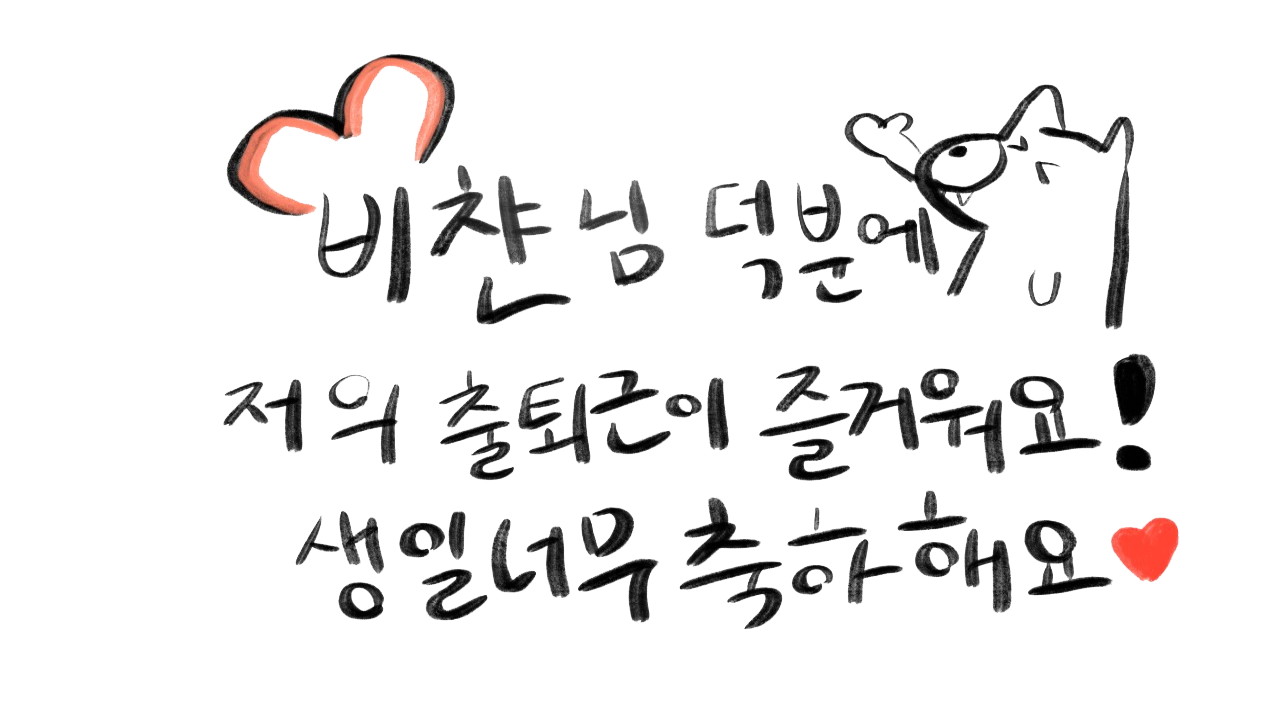 비챤님 덕분에
저의 출퇴근이 즐거워요!
생일 너무 축하해요♥